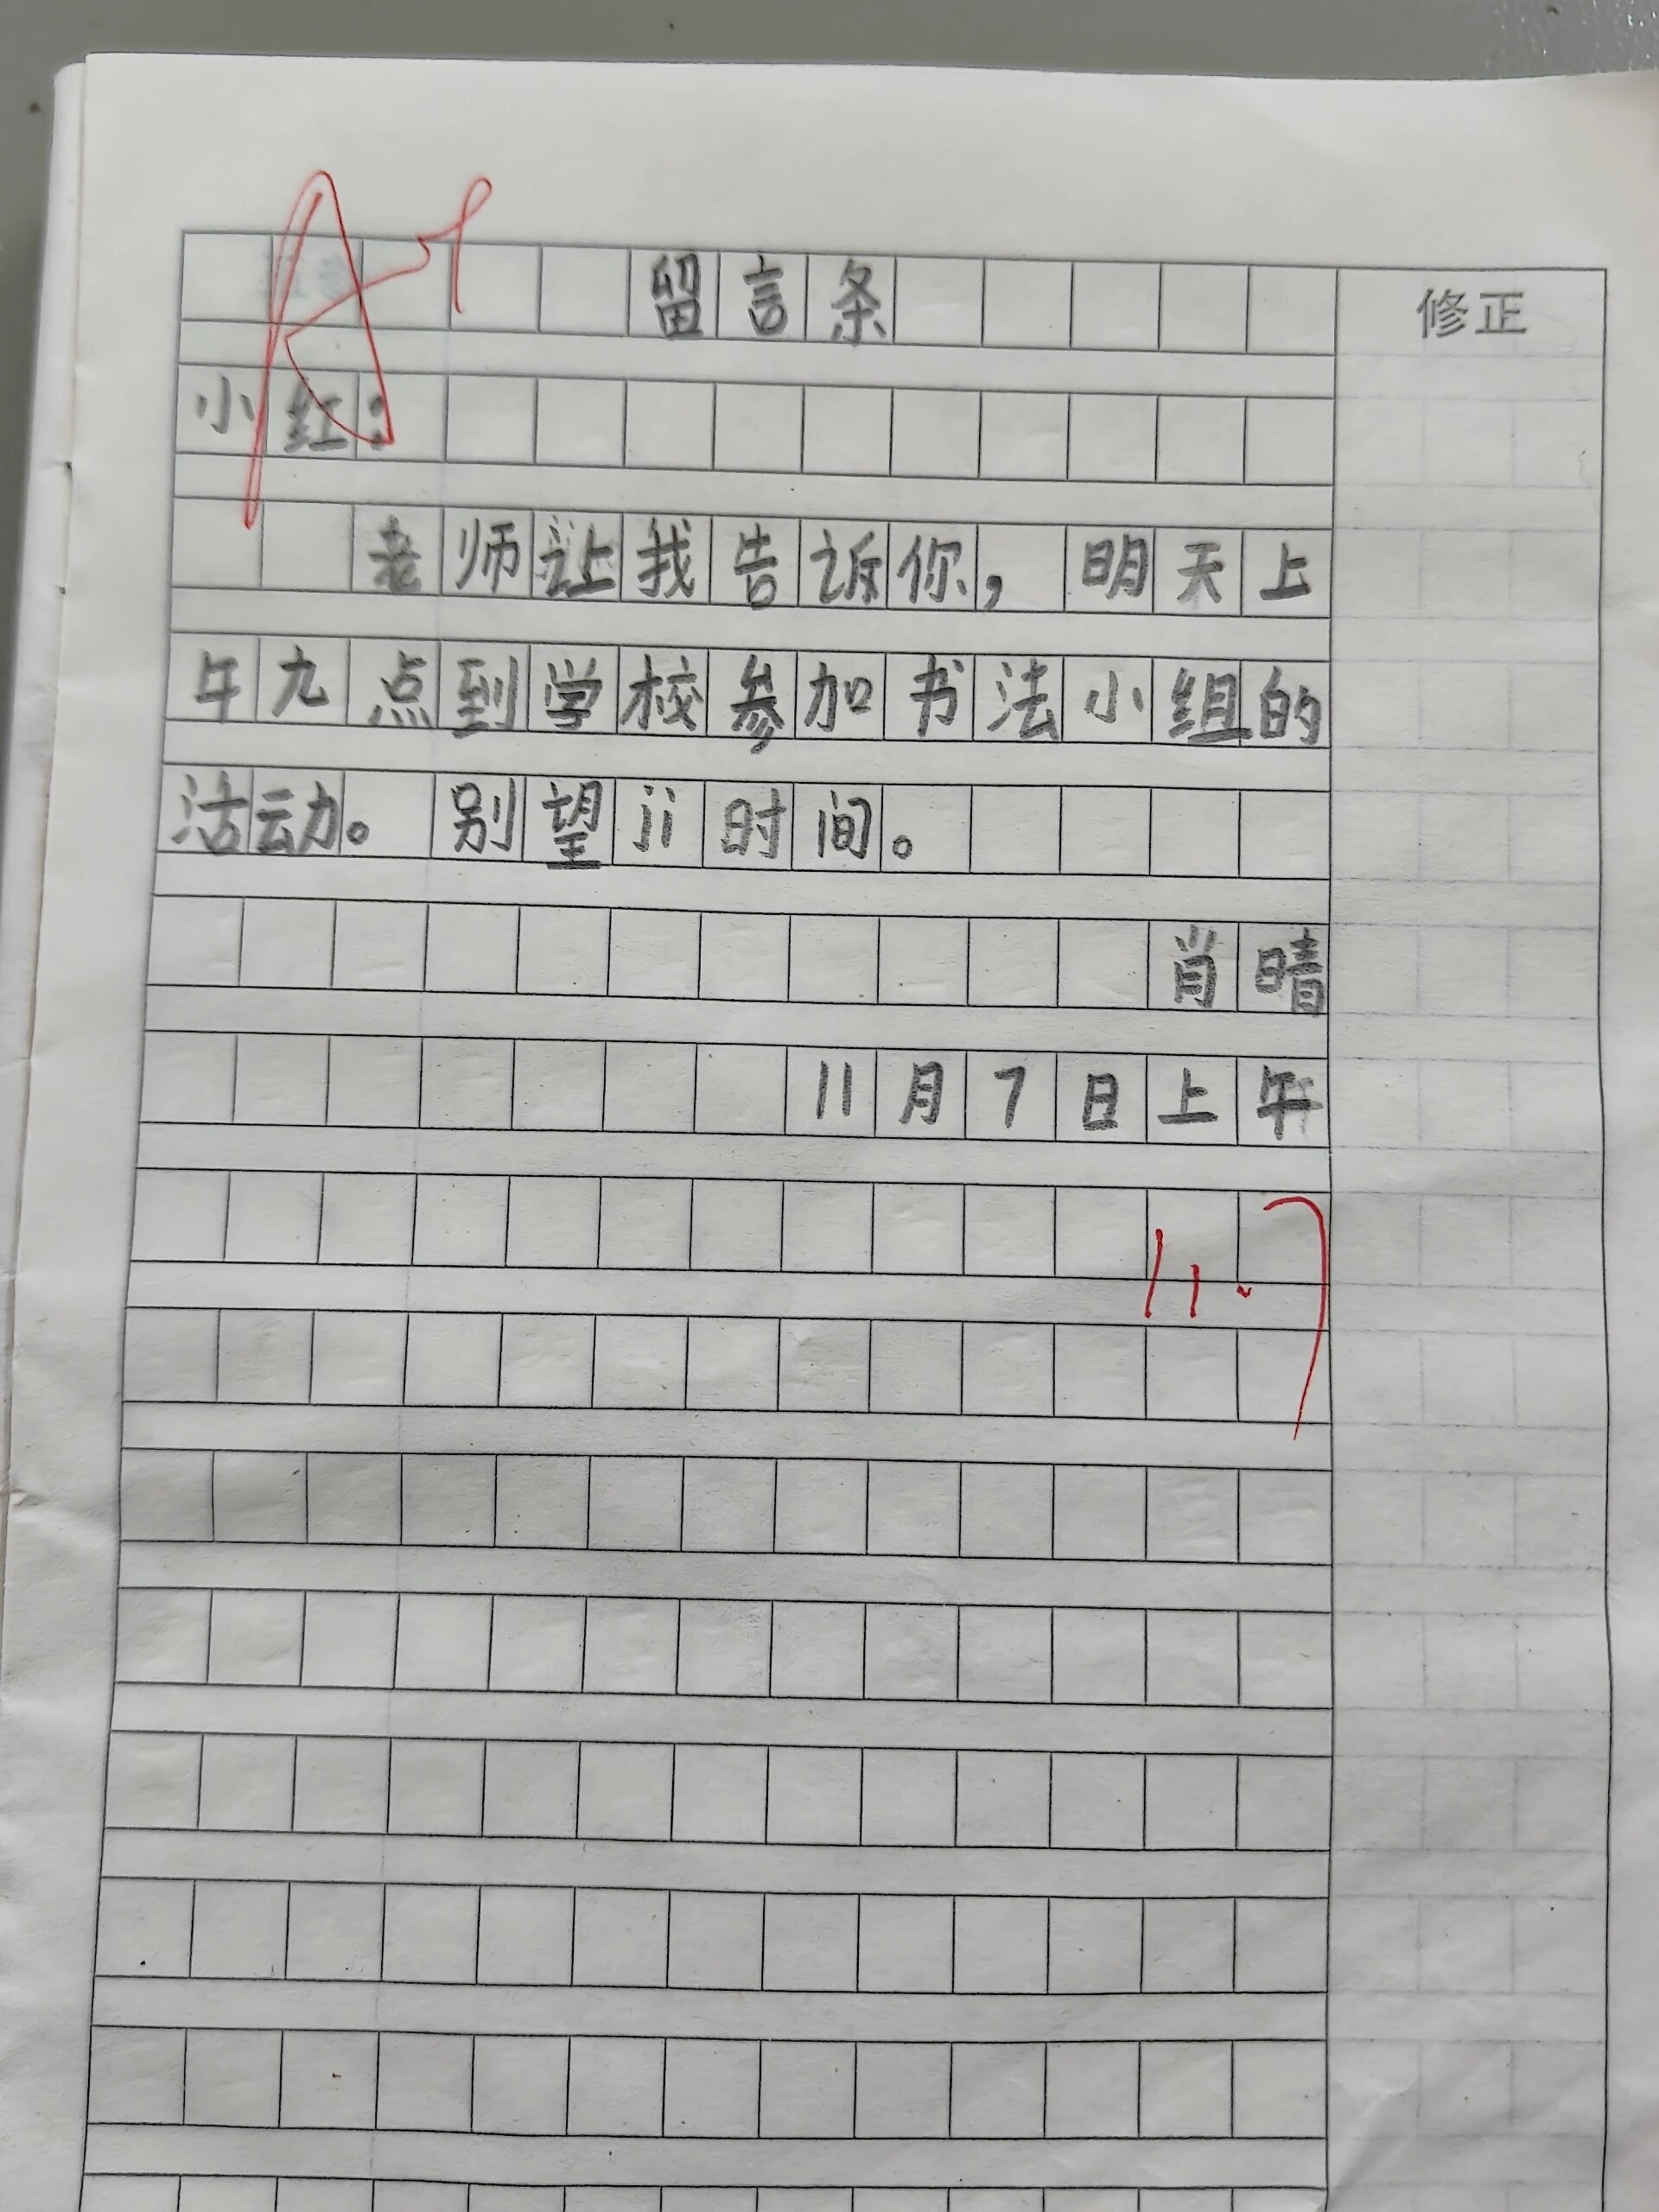 留言条
修正
小红：
老师让我告诉你，明天上
午九点到学校参加书法小组的
活动。别望ji时间。
肖晴
11月7日上午
11.7